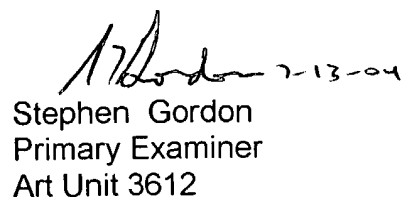 7-13-04
Stephen Gordon
Primary Examiner
Art Unit 3612